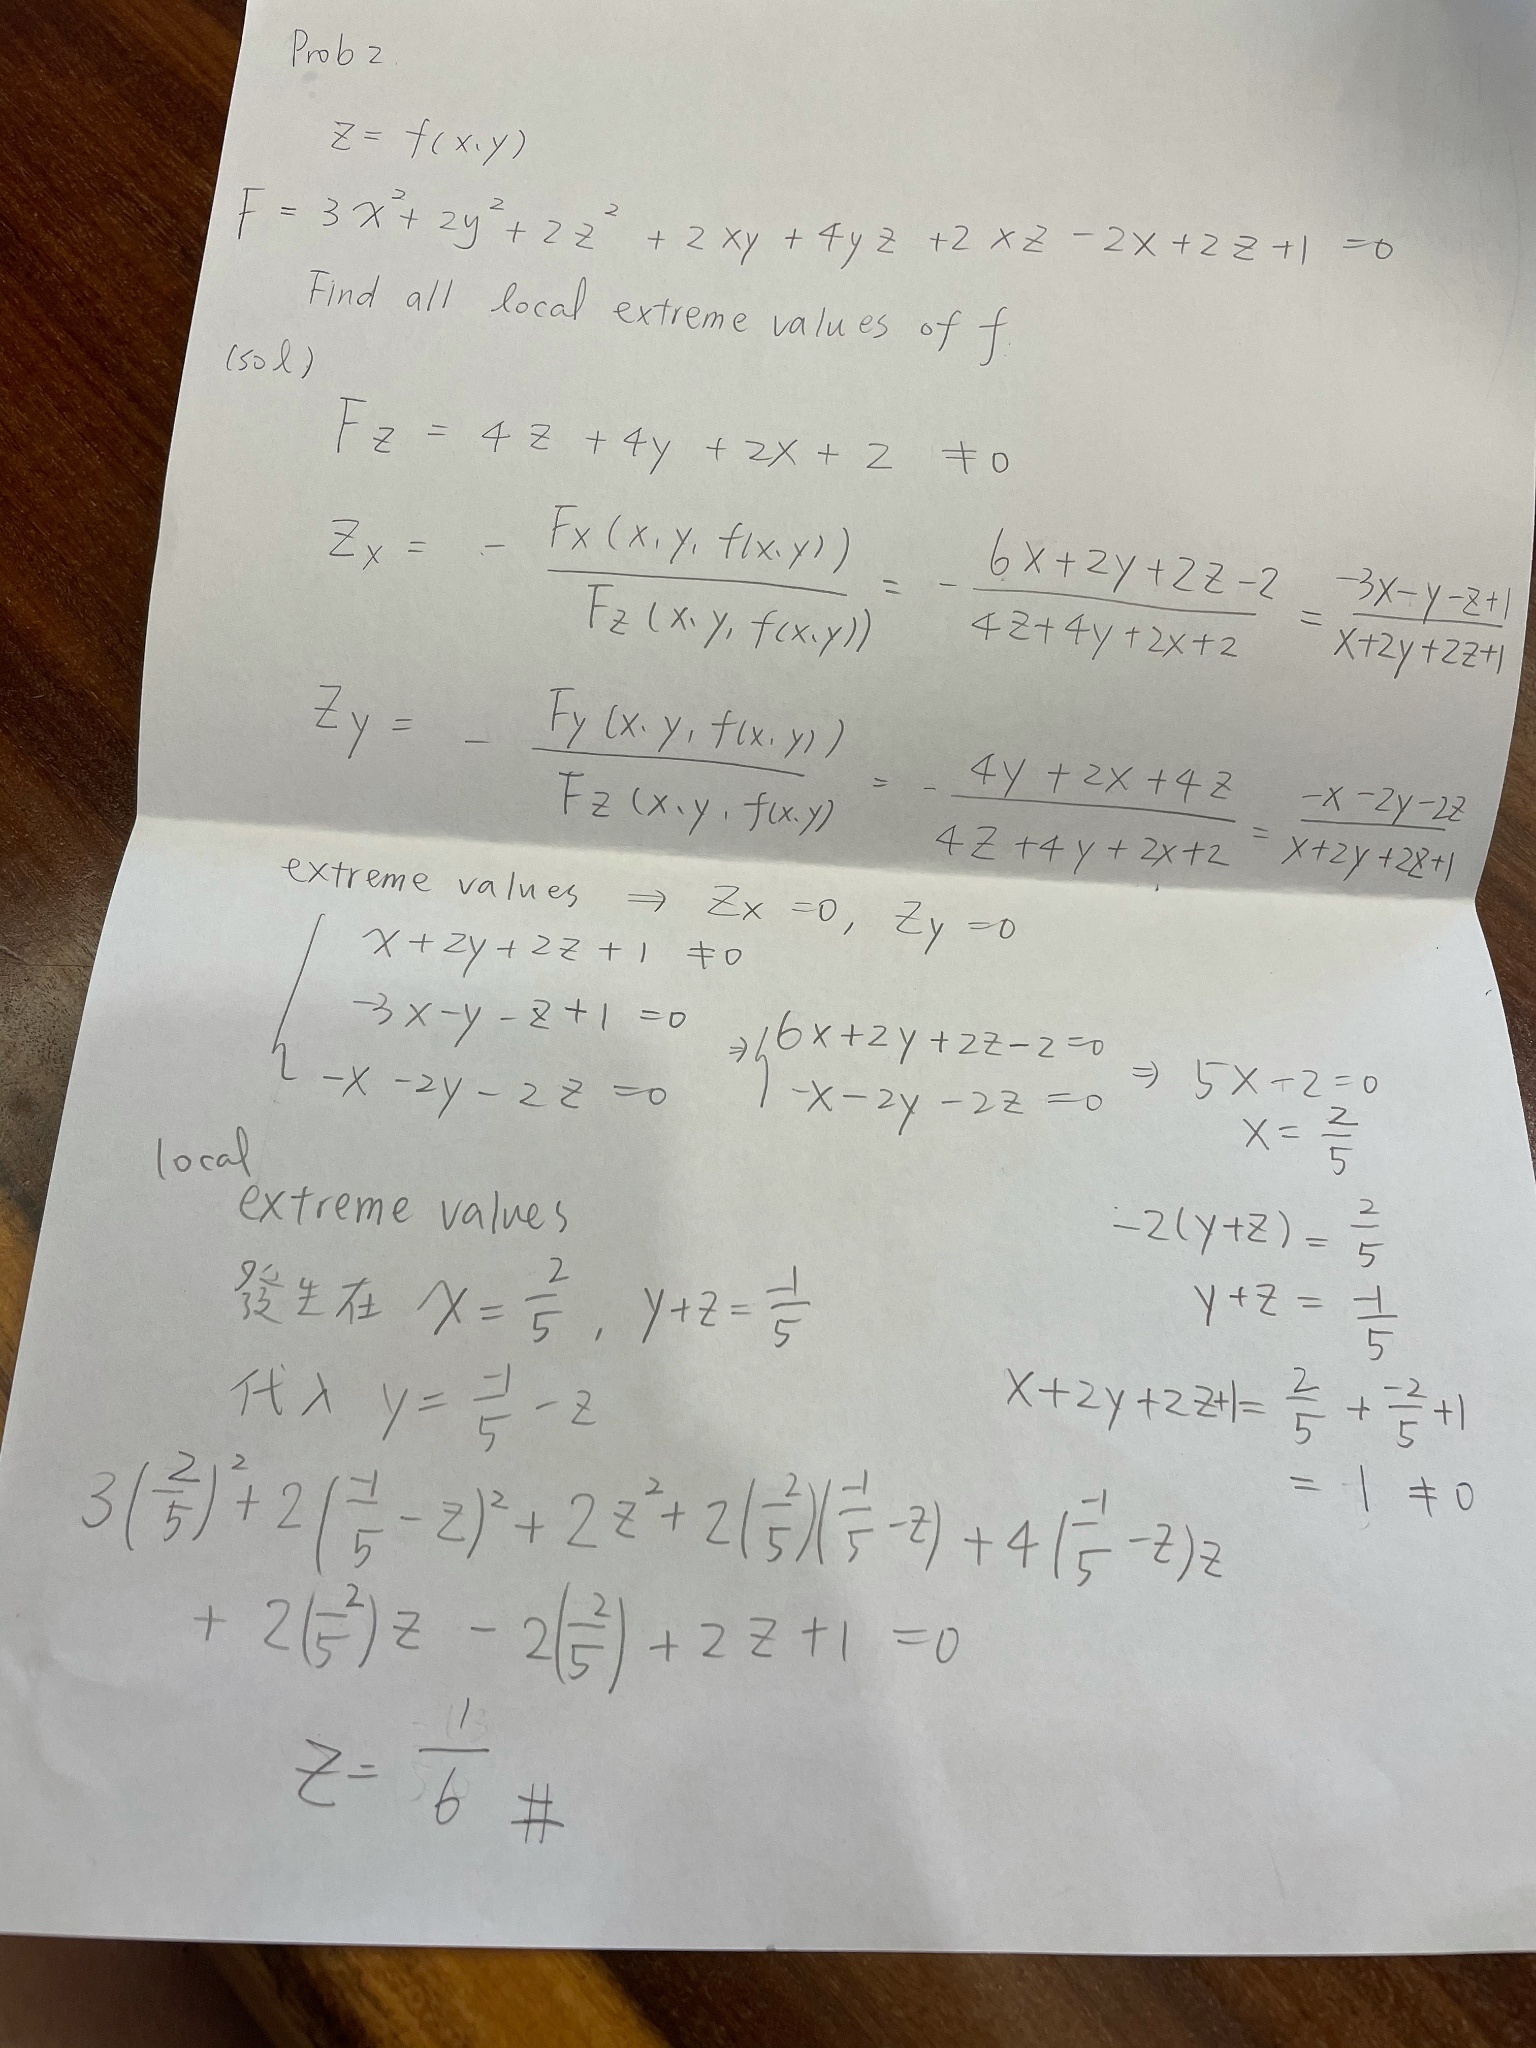 Prob 2.
z = f(x,y)
F = 3x² + 2y² + 2z² + 2xy + 4yz + 2xz - 2x + 2z + 1 = 0
Find all local extreme values of f.
(sol)
Fz = 4z + 4y + 2x + 2 ≠ 0
Zx = - Fx(x,y,f(x,y)) / Fz(x,y,f(x,y)) = - (6x+2y+2z-2) / (4z+4y+2x+2) = (-3x-y-z+1) / (x+2y+2z+1)
Zy = - Fy(x,y,f(x,y)) / Fz(x,y,f(x,y) = - (4y+2x+4z) / (4z+4y+2x+2) = (-x-2y-2z) / (x+2y+2z+1)
extreme values ⇒ Zx = 0, Zy = 0
{ x+2y+2z+1 ≠ 0
-3x-y-z+1 = 0 ⇒ { 6x+2y+2z-2=0
-x-2y-2z = 0 -x-2y-2z=0 ⇒ 5x-2=0
x = 2/5
-2(y+z) = 2/5
y+z = -1/5
x+2y+2z+1 = 2/5 + -2/5 + 1
= 1 ≠ 0
local
extreme values
發生在 x = 2/5, y+z = -1/5
代入 y = -1/5 - z
3(2/5)² + 2(-1/5 - z)² + 2z² + 2(2/5)(-1/5 - z) + 4(-1/5 - z)z
+ 2(2/5)z - 2(2/5) + 2z + 1 = 0
z = 1/6 #